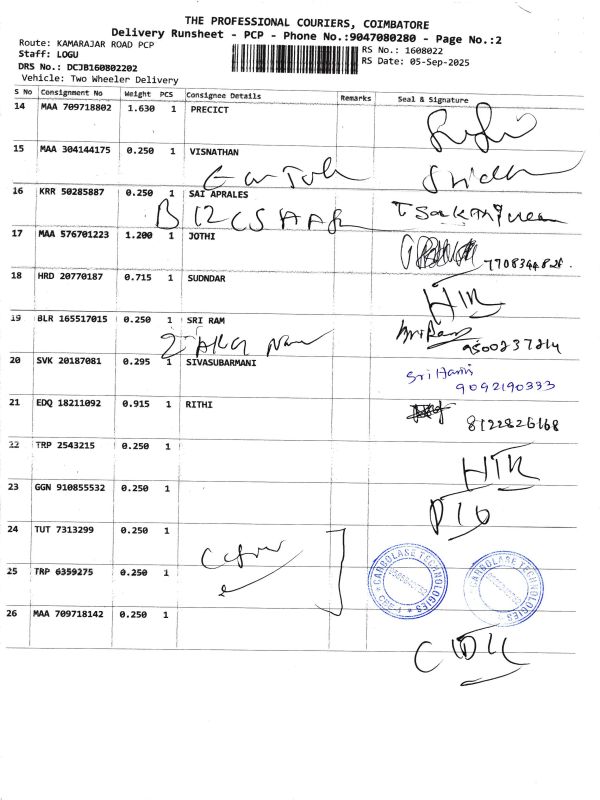 THE PROFESSIONAL COURIERS, COIMBATORE
Delivery Runsheet - PCP - Phone No.:9047080280 - Page No.:2
Route: KAMARAJAR ROAD PCP
RS No.: 1608022
Staff: LOGU
RS Date: 05-Sep-2025
DRS No.: DCJB160802202
Vehicle: Two Wheeler Delivery
S No Consignment No Weight PCS Consignee Details Remarks Seal & Signature
14 MAA 709718802 1.630 1 PRECICT
15 MAA 304144175 0.250 1 VISNATHAN
16 KRR 50285887 0.250 1 SAI APRALES
17 MAA 576701223 1.200 1 JOTHI
7708344828.
18 HRD 20770187 0.715 1 SUDNDAR
19 BLR 165517015 0.250 1 SRI RAM
Sri Ram
9500237214
20 SVK 20187081 0.295 1 SIVASUBARMANI
Sri Harris
9092190333
21 EDQ 18211092 0.915 1 RITHI
8122826168
22 TRP 2543215 0.250 1
HTR
23 GGN 910855532 0.250 1
24 TUT 7313299 0.250 1
25 TRP 6359275 0.250 1
CARBOLASE TECHNOLOGIES
CARBOLASE TECHNOLOGIES
26 MAA 709718142 0.250 1